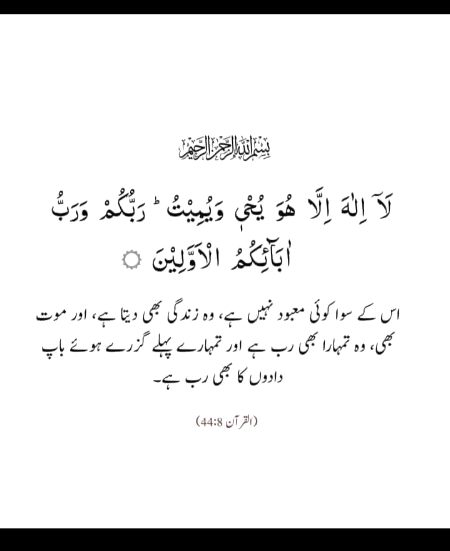 بِسْمِ اللهِ الرَّحْمٰنِ الرَّحِيْمِ
لَآ اِلٰهَ اِلَّا هُوَ يُحْيٖ وَيُمِيْتُ ؕ رَبُّكُمْ وَرَبُّ
اٰبَآئِكُمُ الْاَوَّلِيْنَ ۝
اس کے سوا کوئی معبود نہیں ہے، وہ زندگی بھی دیتا ہے، اور موت
بھی، وہ تمہارا بھی رب ہے اور تمہارے پہلے گزرے ہوئے باپ
دادوں کا بھی رب ہے۔
(القرآن 44:8)